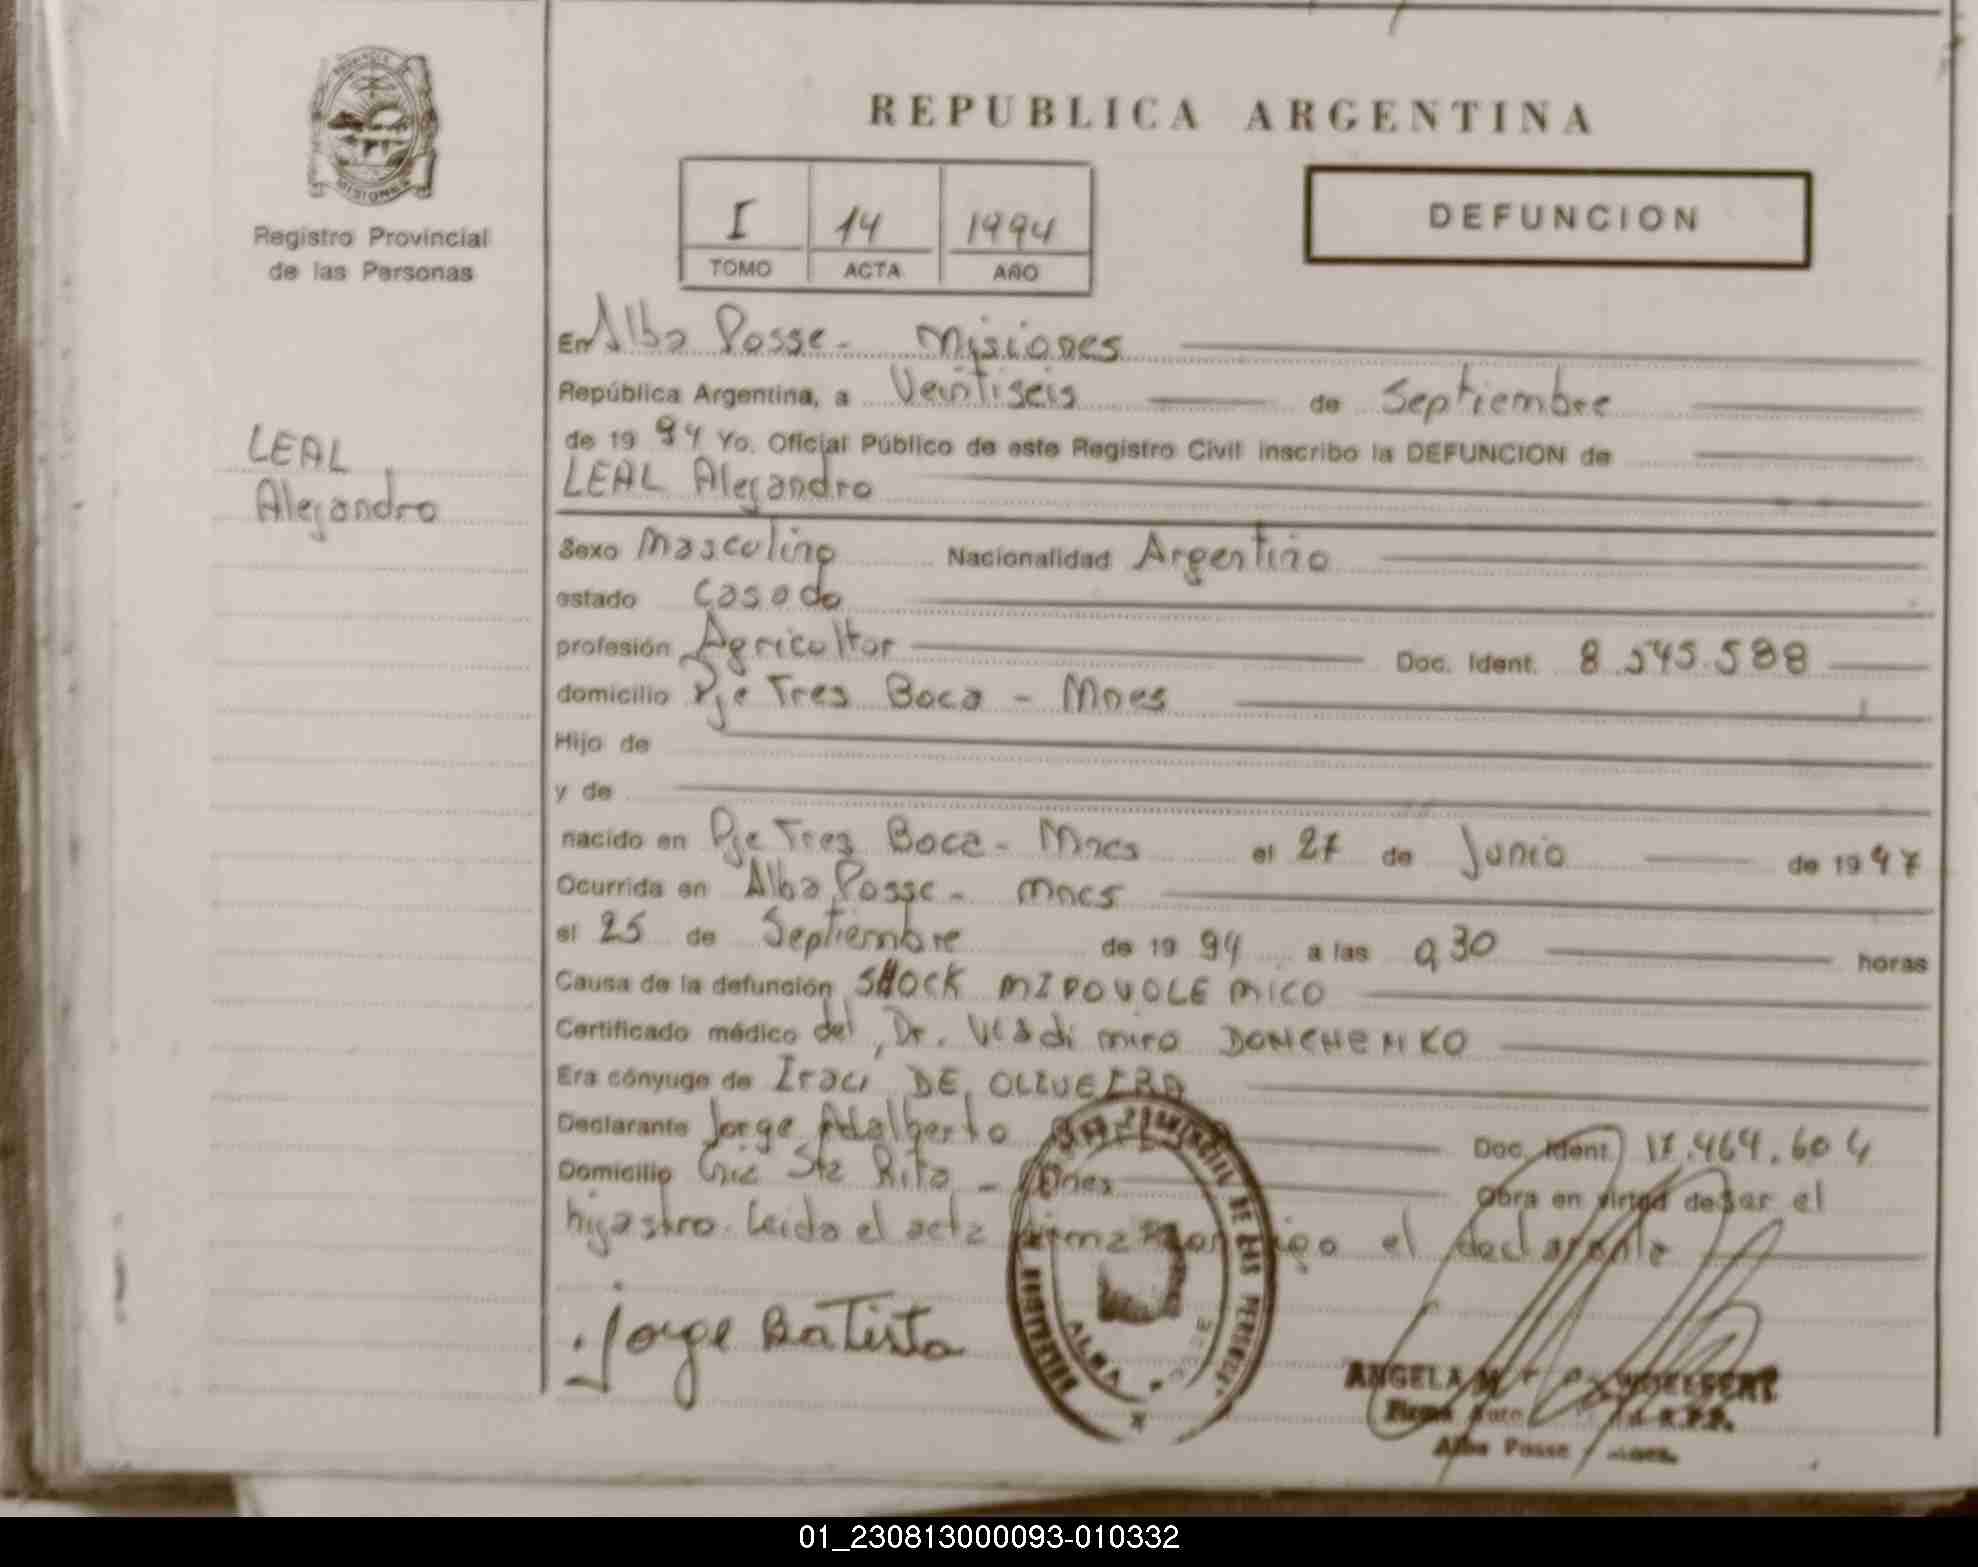 PROVINCIA DE
MISIONES
Registro Provincial
de las Personas
LEAL
Alejandro
REPUBLICA ARGENTINA
I 14 1994
TOMO ACTA AÑO
DEFUNCION
En Alba Posse - Misiones
República Argentina, a Veintiseis de Septiembre
de 19 94 Yo. Oficial Público de este Registro Civil inscribo la DEFUNCION de
LEAL Alejandro
Sexo Masculino Nacionalidad Argentino
estado Casado
profesión Agricultor Doc. Ident. 8.545.588
domicilio Pje Tres Boca - Mnes
Hijo de
y de
nacido en Pje Tres Boca - Mnes el 27 de Junio de 19 47
Ocurrida en Alba Posse - Mnes
el 25 de Septiembre de 19 94 a las 9 30 horas
Causa de la defunción SHOCK MIPOVOLEMICO
Certificado médico del Dr. Vladimiro DONCHENKO
Era cónyuge de Iraci DE OLIVEIRA
Declarante Jorge Adalberto Doc. Ident. 17.464.604
Domicilio Cnia Sta Rita - Mnes Obra en virtud de ser el
hijastro. Leida el acta firma conmigo el declarante
Jorge Batista
PROVINCIAL DE LAS PERSONAS
ALBA POSSE
ANGELA M
Firma
Alba Posse Mnes.
01_230813000093-010332